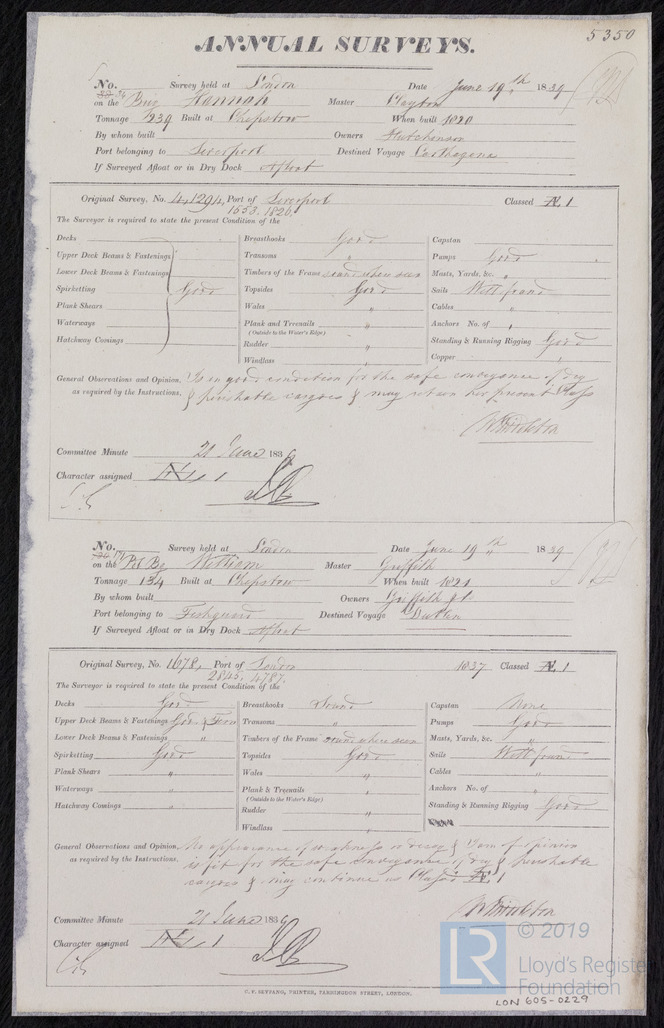 5350
ANNUAL SURVEYS.
No. Survey held at London Date June 19th 1839
on the Brig Hannah Master Clayton
Tonnage 239 Built at Chepstow When built 1820
By whom built Owners Hutchinson
Port belonging to Liverpool Destined Voyage Carthagena
If Surveyed Afloat or in Dry Dock Afloat
Original Survey, No. 4,1294, Port of Liverpool Classed Æ 1
1653. 1826.
The Surveyor is required to state the present Condition of the
Decks Breasthooks Good Capstan
Upper Deck Beams & Fastenings Transoms " Pumps Good
Lower Deck Beams & Fastenings Timbers of the Frame sound where seen Masts, Yards, &c. "
Spirketting Good Topsides Good Sails Well found
Plank Shears Wales " Cables "
Waterways Plank and Treenails " Anchors No. of "
(Outside to the Water's Edge)
Hatchway Comings Rudder " Standing & Running Rigging Good
Windlass " Copper "
General Observations and Opinion, Is in good condition for the safe conveyance of dry
as required by the Instructions. & perishable cargoes & may retain her present Class
Committee Minute 21 June 1839
Character assigned Æ 1
No. Survey held at London Date June 19th 1839
on the William Master Griffith
Tonnage 134 Built at Chepstow When built 1821
By whom built Owners Griffith
Port belonging to Fishguard Destined Voyage Dublin
If Surveyed Afloat or in Dry Dock Afloat
Original Survey, No. 1678, Port of London 1837 Classed Æ 1
2845. 4787.
The Surveyor is required to state the present Condition of the
Decks Good Breasthooks Sound Capstan None
Upper Deck Beams & Fastenings Good Transoms " Pumps Good
Lower Deck Beams & Fastenings " Timbers of the Frame sound where seen Masts, Yards, &c. "
Spirketting Good Topsides Good Sails Well found
Plank Shears " Wales " Cables "
Waterways " Plank & Treenails " Anchors No. of "
(Outside to the Water's Edge)
Hatchway Comings " Rudder " Standing & Running Rigging Good
Windlass "
General Observations and Opinion, No appearance of weakness & am of opinion
as required by the Instructions. is fit for the safe conveyance of dry & perishable
cargoes & may continue as Class'd Æ 1
Committee Minute 21 June 1839
Character assigned Æ 1
C. F. SEYFANG, PRINTER, FARRINGDON STREET, LONDON.
LR © 2019
Lloyd's Register
Foundation
LON 605-0229